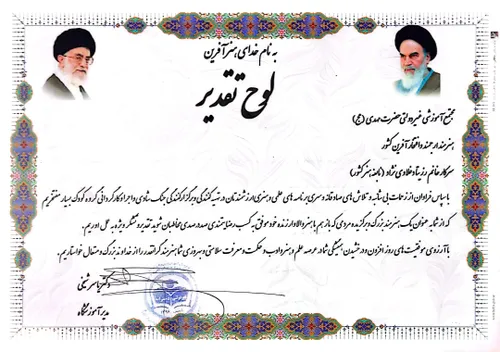 به نام خدای هنرآفرین
لوح تقدیر
مجتمع آموزشی غیر دولتی حضرت مهدی (عج)
هنرمند ارجمند و افتخار آفرین کشور
سرکار خانم
با سپاس فراوان از زحمات بی شائبه و تلاش های صادقانه و سری برنامه های علمی و هنری ارزشمندتان در تهیه کنندگی و برگزار کنندگی جنگ شادی و اجرا و کارگردانی گروه کودک بسیار مفتخریم
که از شما به عنوان یک هنرمند بزرگ و برگزیده مردمی که بازهم با هنر والا و ارزنده خود موفق به کسب رضایتمندی صد در صدی مخاطبان شوید تقدیر و تشکر ویژه به عمل آوریم.
با آرزوی موفقیت های روز افزون و درخشیدن همیشگی شما در عرصه علم و هنر و ادب و حکمت و معرفت سلامتی و پیروزی شما هنرمند گرانقدر را از خداوند بزرگ و متعال خواستاریم.
دکتر یاسر شینی
مدیر آموزشگاه